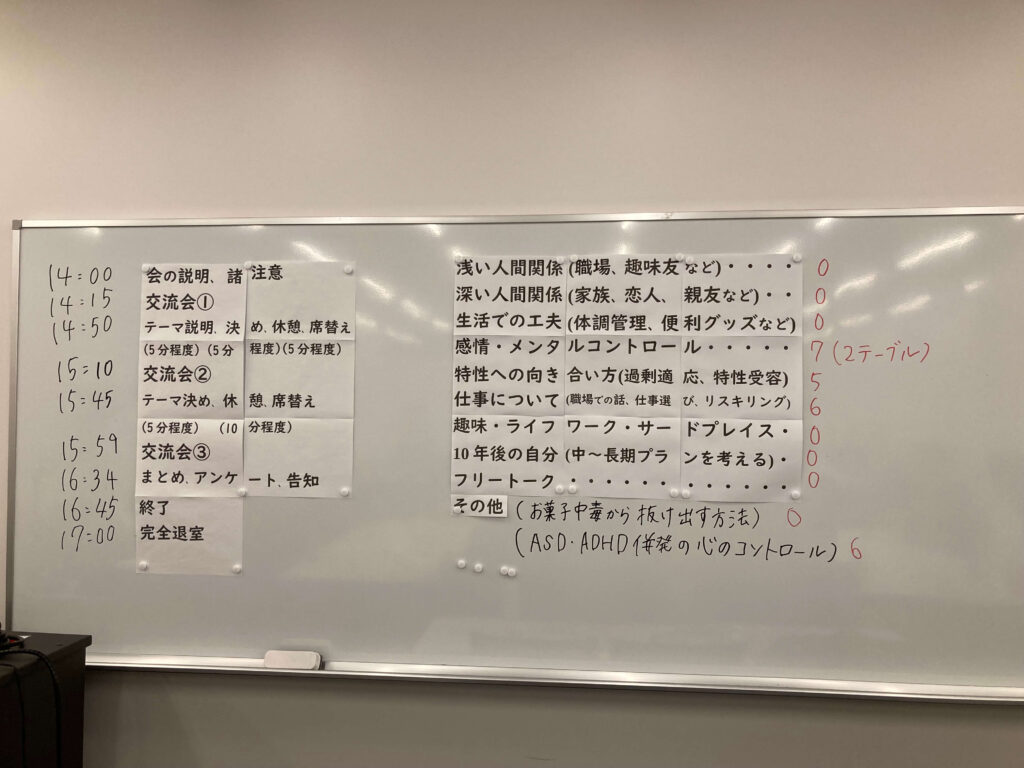 14:00 会の説明、諸注意
14:15 交流会①
14:50 テーマ説明、決め、休憩、席替え
(5分程度) (5分程度)(5分程度)
15:10 交流会②
15:45 テーマ決め、休憩、席替え
(5分程度) (10分程度)
15:59 交流会③
16:34 まとめ、アンケート、告知
16:45 終了
17:00 完全退室
浅い人間関係(職場、趣味友など)・・・・ 0
深い人間関係(家族、恋人、親友など)・・ 0
生活での工夫(体調管理、便利グッズなど) 0
感情・メンタルコントロール・・・・・ 7 (2テーブル)
特性への向き合い方(過剰適応、特性受容) 5
仕事について(職場での話、仕事選び、リスキリング) 6
趣味・ライフワーク・サードプレイス・ 0
10年後の自分(中〜長期プランを考える)・ 0
フリートーク・・・・・・・・・・・ 0
その他 (お菓子中毒から抜け出す方法) 0
(ASD・ADHD併発の心のコントロール) 6